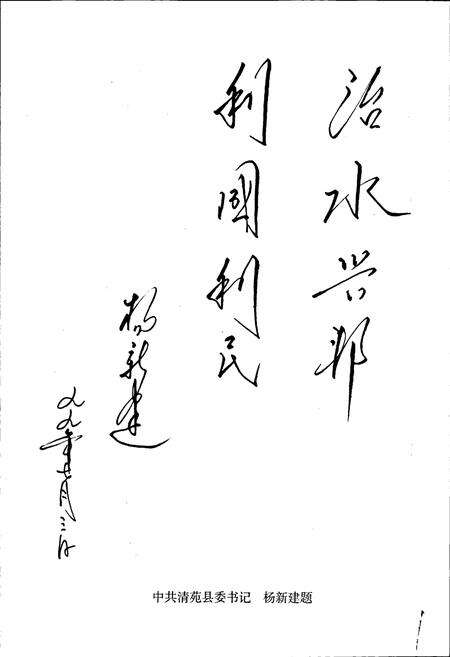 治水兴邦
利國利民
杨新建
九九年七月三日
中共清苑县委书记 杨新建题